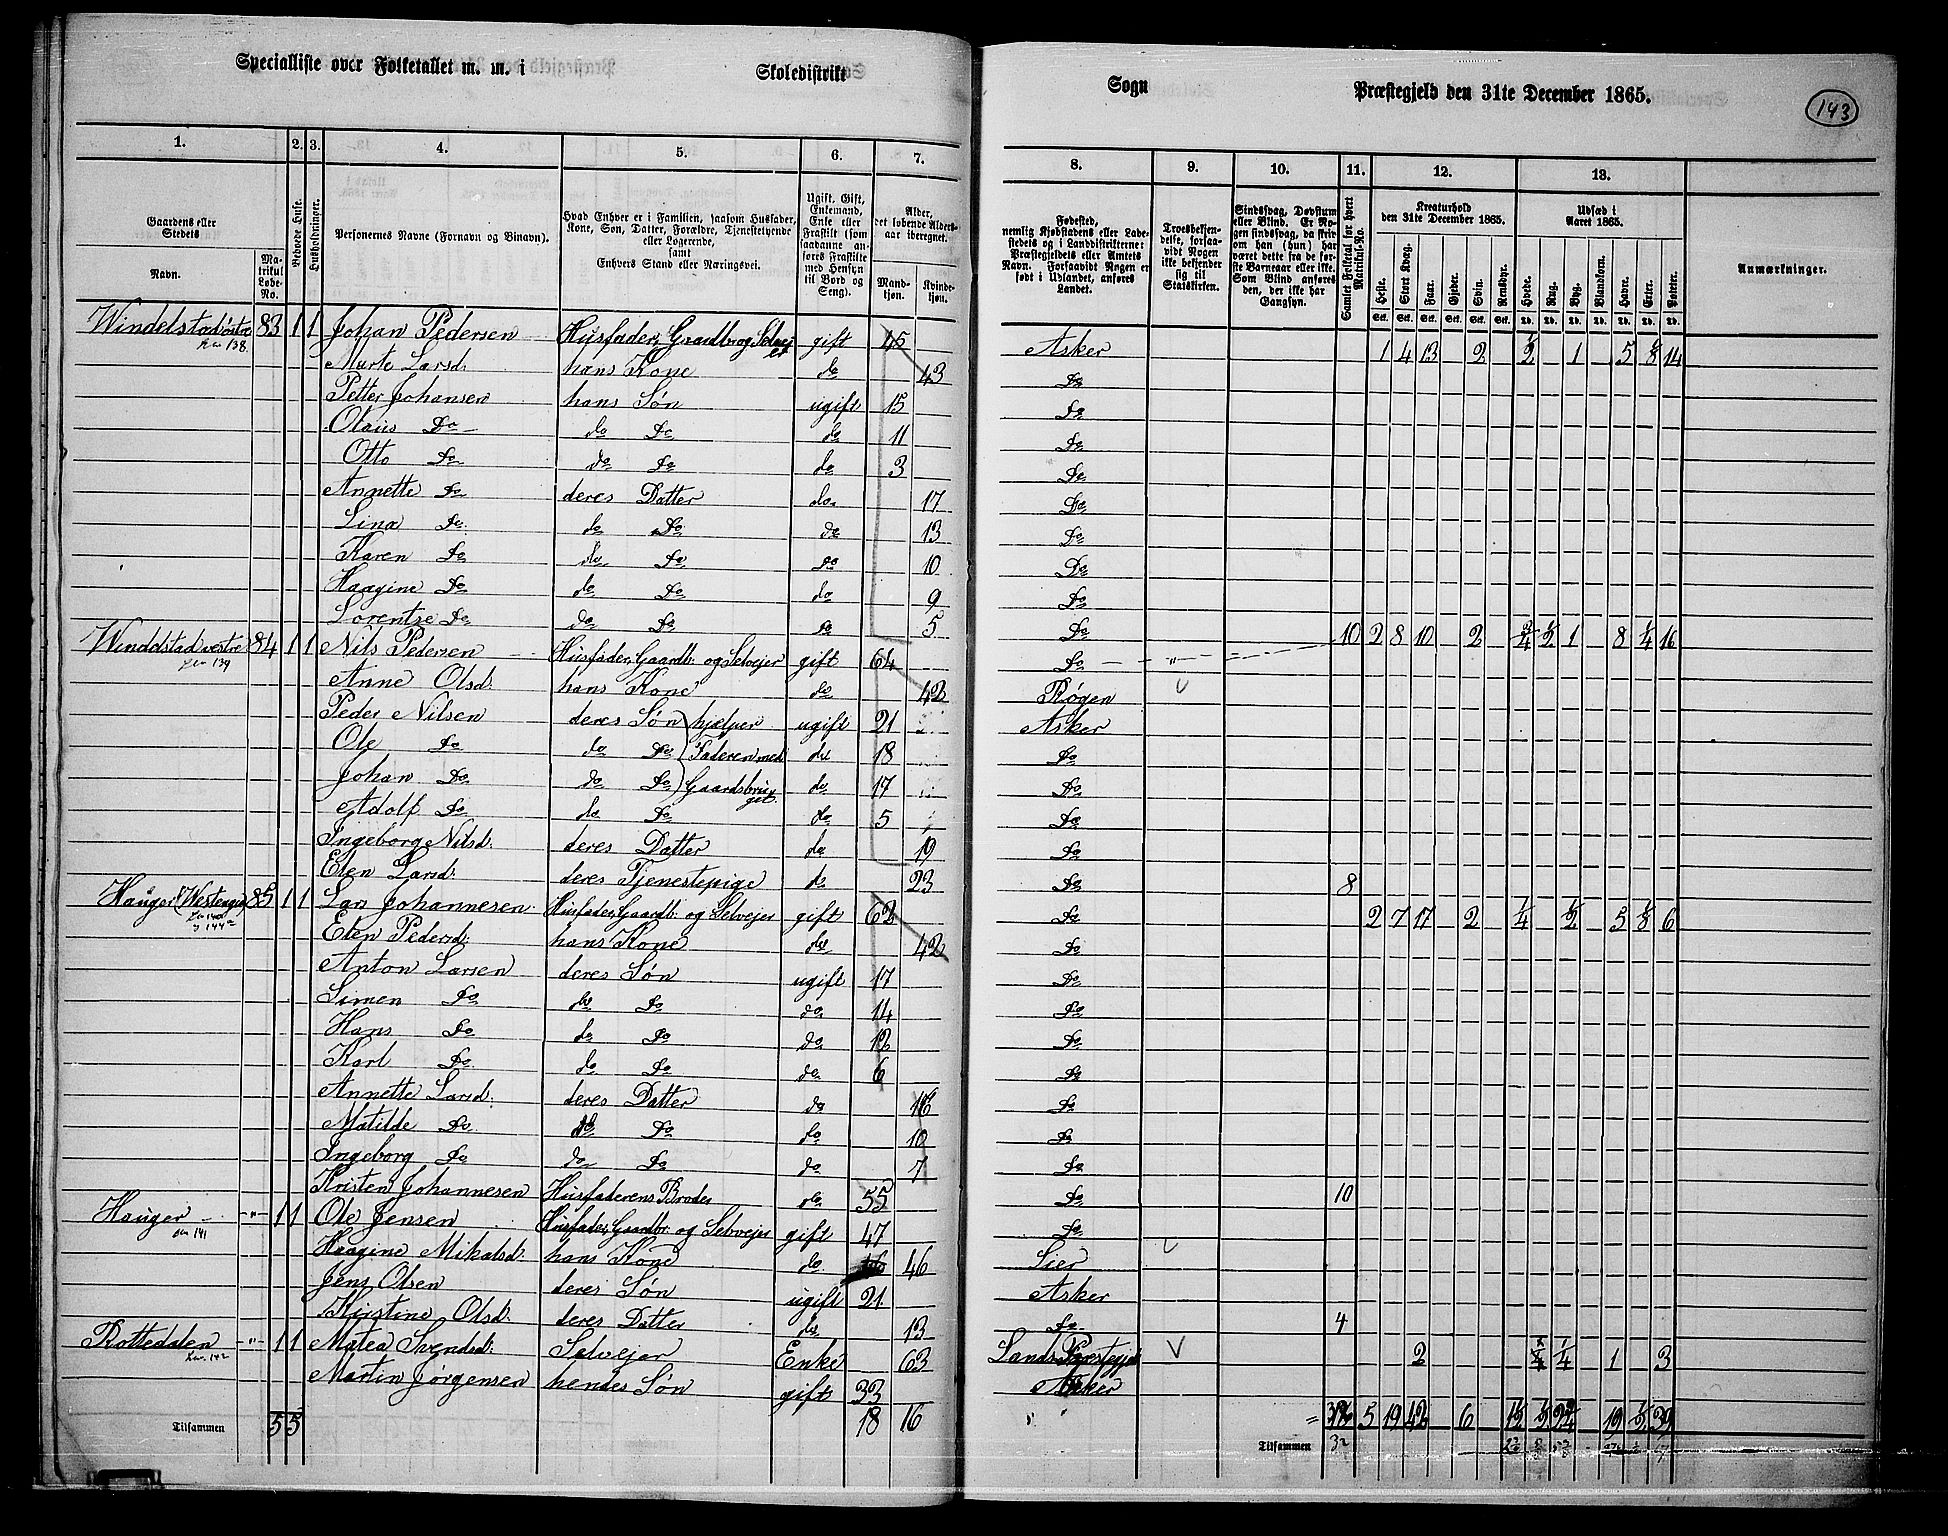 Specialliste over Folketallet m. m. i Skoledistrikt Sogn Præstegjeld den 31te December 1865. 143
1. 2. 3. 4. 5. 6. 7. 8. 9. 10. 11. 12. 13.
Gaardens eller Stedets
Navn.
Matrikul Løbe-No.
Beboede Huse.
Husholdninger.
Personernes Navne (Fornavn og Binavn).
Hvad Enhver er i Familien, saasom Husfader, Kone, Søn, Datter, Forældre, Tjenestetyende eller Logerende, samt Enhvers Stand eller Næringsvei.
Ugift, Gift, Enkemand, Enke eller Fraskilt (som saadanne anføres Fraskilte med Hensyn til Bord og Seng).
Alder, det løbende Alders-aar iberegnet.
Mandkjøn. Kvindekjøn.
Fødested, nemlig Kjøbstadens eller Ladestedets og i Landdistrikterne: Præstegjeldets eller Amtets Navn. Forsaavidt Nogen er født i Udlandet, anføres Landet.
Troesbekjendelse, forsaavidt Nogen ikke bekjender sig til Statskirken.
Sindssvag, Døvstum eller Blind. Er Nogen sindssvag, da skrives om han (hun) har været dette fra de første Barneaar eller ikke. Som Blind anføres den, der ikke har Gangsyn.
Samlet Folketal for hvert Matrikul-No.
Kreaturhold den 31te December 1865.
Heste. Stort Kvæg. Faar. Gjeder. Svin. Rensdyr.
Udsæd i Aaret 1865.
Hvede. Rug. Byg. Blandkorn. Havre. Erter. Poteter.
Anmærkninger.
Windelstad østre 83 1 1 Johan Pedersen Husfader, Gaardbr og Selvejer gift 45 Asker 1 4 13 2 1/2 1 5 1/8 14
Lnr 138
Marte Larsd. hans Kone do 43 Do
Petter Johansen hans Søn ugift 15 Do
Olaus Do do Do do 11 Do
Otto Do do Do do 3 Do
Annette Do deres Datter do 17 Do
Lina Do do Do do 13 Do
Karen Do do Do do 10 Do
Haagine Do do Do do 9 Do
Lorentze Do do Do do 5 Do 10
Windelstad vestre 84 1 1 Nils Pedersen Husfader, Gaardb. og Selvejer gift 64 Do 2 8 10 2 3/4 1/2 1 8 1/4 16
Lnr 139
Anne Olsd: hans Kone do 42 Røgen
Peder Nilsen deres Søn hjelper ugift 21 Asker
Ole Do do Do Faderen med do 18 Do
Johan Do do Do Gaardsbruget do 17 Do
Adolf Do do Do do 5 Do
Ingeborg Nilsd: deres Datter do 19 Do
Elen Larsd: deres Tjenestepige do 23 Do 8
Hauger (Westengen) 85 1 1 Lars Johannesen Husfader, Gaardb. og Selvejer gift 62 Do 2 7 17 2 1/4 1/2 5 1/8 6
Elen Pedersd: hans Kone do 42 Do
Anton Larsen deres Søn ugift 17 Do
Simen Do do Do do 14 Do
Hans Do do Do do 12 Do
Karl Do do Do do 6 Do
Annette Larsd: deres Datter do 16 Do
Matilde Do do Do do 10 Do
Ingeborg Do do Do do 7 Do
Kristen Johannesen Husfaderens Broder do 55 Do 10
Hauger - " - 1 1 Ole Jensen Husfader, Gaardbr. og Selvejer gift 47 Do
Lnr 141
Haagine Mikalsd: hans Kone do 46 Lier
Jens Olsen deres Søn ugift 21 Asker
Kirstine Olsd: deres Datter do 13 Do 4
Rottedalen - " - 1 1 Matea Svendsd: Selvejer Enke 63 Lands Præstegjeld 2 1/4 1/4 1 3
Lnr. 142
Martin Jørgensen hendes Søn gift 33 Asker
Tilsammen 5 5 18 16 Tilsammen 5 19 42 6 19 1/2 39
32